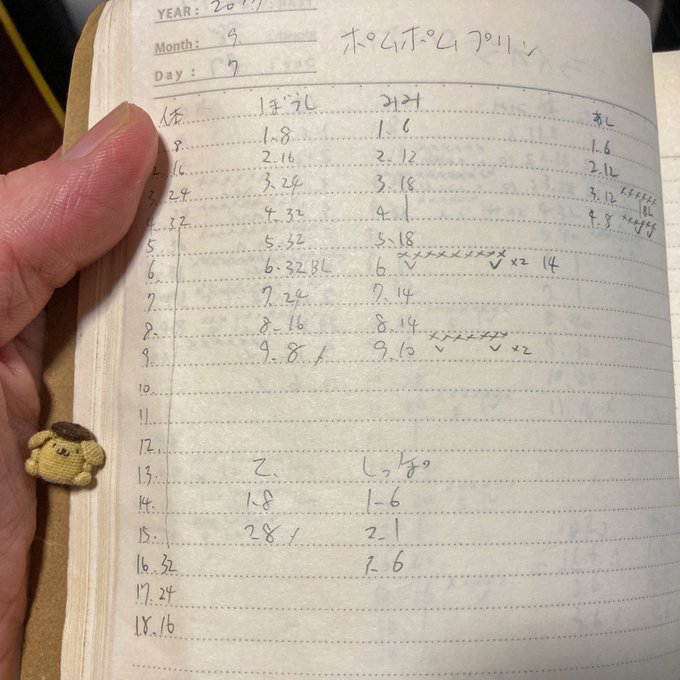 YEAR: 2017
Month: 9.
Day: 7
ポムポムプリン
体 ぼうし みみ あし
8 1-8 1-6 1.6
16 2-16 2-12 2.12
3.24 3.24 3.18 3.12 ×××××× BL
4.32 4.32 4. 1 4.8 ××××××
5 5.32 5-18
6. 6-32BL 6 ×××××××××× v v ×2 14
7 7-24 7-14
8. 8-16 8.14
9. 9-8 / 9.10 ×××××××× v v ×2
10.
11
12.
13. て. しっぽ
14. 1-8 1-6
15. 28 / 2-1
16.32 6
17.24
18.16